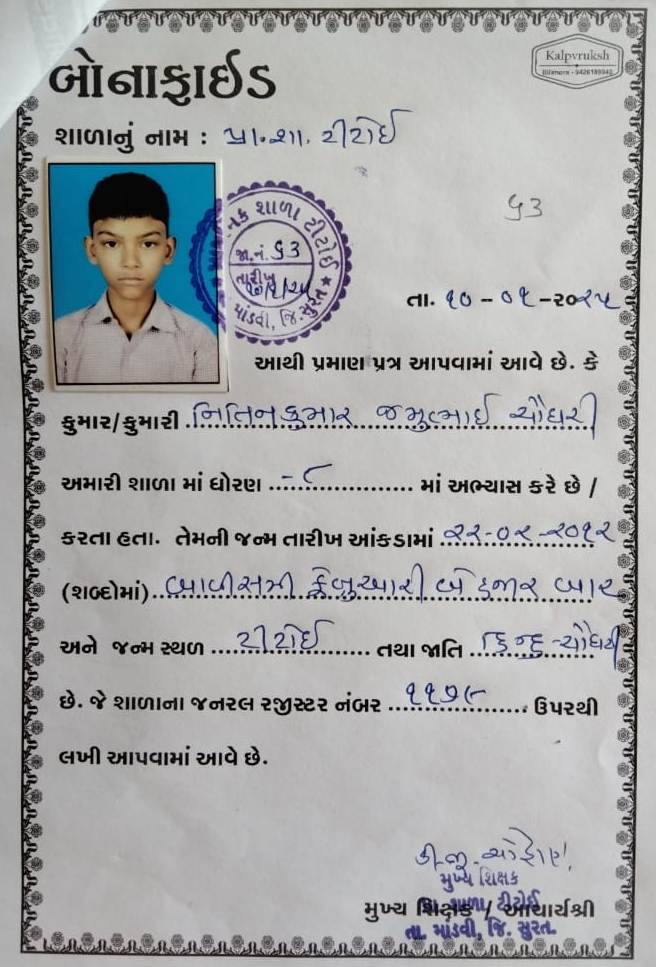 બોનાફાઇડ
Kalpvruksh
Bilimora - 9426189940
શાળાનું નામ : પ્રા.શા. ટીટોઈ
૬૩
શાળા ટીટોઈ
જા.નં. ૬૩
તારીખ
માંડવી, જિ.સુરત
તા. ૧૦ - ૦૧ - ૨૦૨૫
આથી પ્રમાણ પત્ર આપવામાં આવે છે. કે
કુમાર/કુમારી નિતિનકુમાર જમુભાઈ ચૌધરી
અમારી શાળા માં ધોરણ - ૮ માં અભ્યાસ કરે છે /
કરતા હતા. તેમની જન્મ તારીખ આંકડામાં ૨૨-૦૨-૨૦૧૨
(શબ્દોમાં) બાવીસમી ફેબ્રુઆરી બે હજાર બાર
અને જન્મ સ્થળ ટીટોઈ તથા જાતિ હિન્દુ-ચૌધરી
છે. જે શાળાના જનરલ રજીસ્ટર નંબર ૧૧૭૯ ઉપરથી
લખી આપવામાં આવે છે.
મુખ્ય શિક્ષક
મુખ્ય શિક્ષક / આચાર્યશ્રી
શાળા ટીટોઈ
તા. માંડવી, જિ. સુરત.